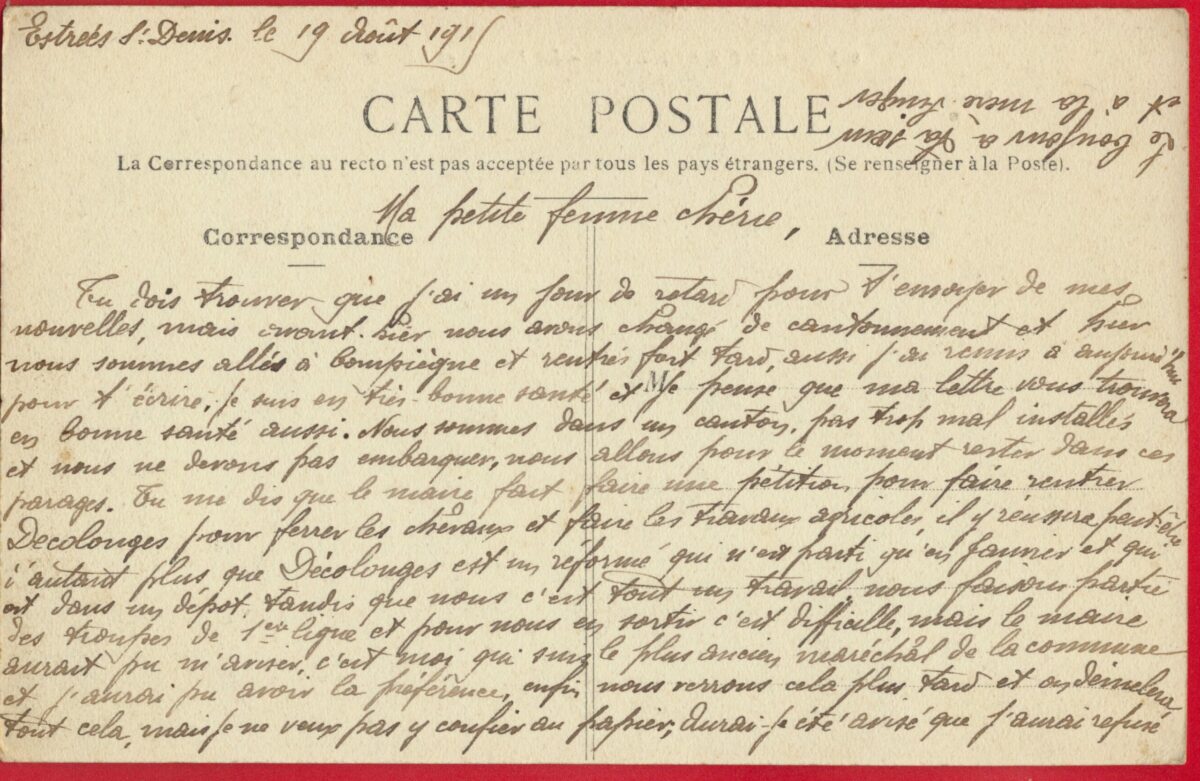 Estrées St Denis. le 19 Août 1915
CARTE POSTALE
La Correspondance au recto n'est pas acceptée par tous les pays étrangers. (Se renseigner à la Poste).
Ma petite femme chérie,
Correspondance
Adresse
M
Tu dois trouver que j'ai un jour de retard pour t'envoyer de mes
nouvelles, mais avant-hier nous avons changé de cantonnement et hier
nous sommes allés à Compiègne et rentrés fort tard, aussi j'ai remis à aujourd'hui
pour t'écrire, je suis en très bonne santé et je pense que ma lettre vous trouvera
en bonne santé aussi. Nous sommes dans un canton, pas trop mal installés
et nous ne devons pas embarquer, nous allons pour le moment rester dans ces
parages. Tu me dis que le maire fait faire une pétition pour faire rentrer
Decolonges pour ferrer les chevaux et faire les travaux agricoles, il y réussira peut-être
d'autant plus que Décolonges est un réformé qui n'est parti qu'en Janvier et qui
est dans un dépôt, tandis que nous c'est tout un travail nous faisons partie
des troupes de 1ère ligne et pour nous en sortir c'est difficile, mais le maire
aurait pu m'aviser, c'est moi qui suis le plus ancien maréchal de la commune
et j'aurai pu avoir la préférence, enfin nous verrons cela plus tard et on démêlera
tout cela, mais je ne veux pas y confier au papier, Aurai-je été avisé que j'aurai refusé
le bonjour à
et à la mère